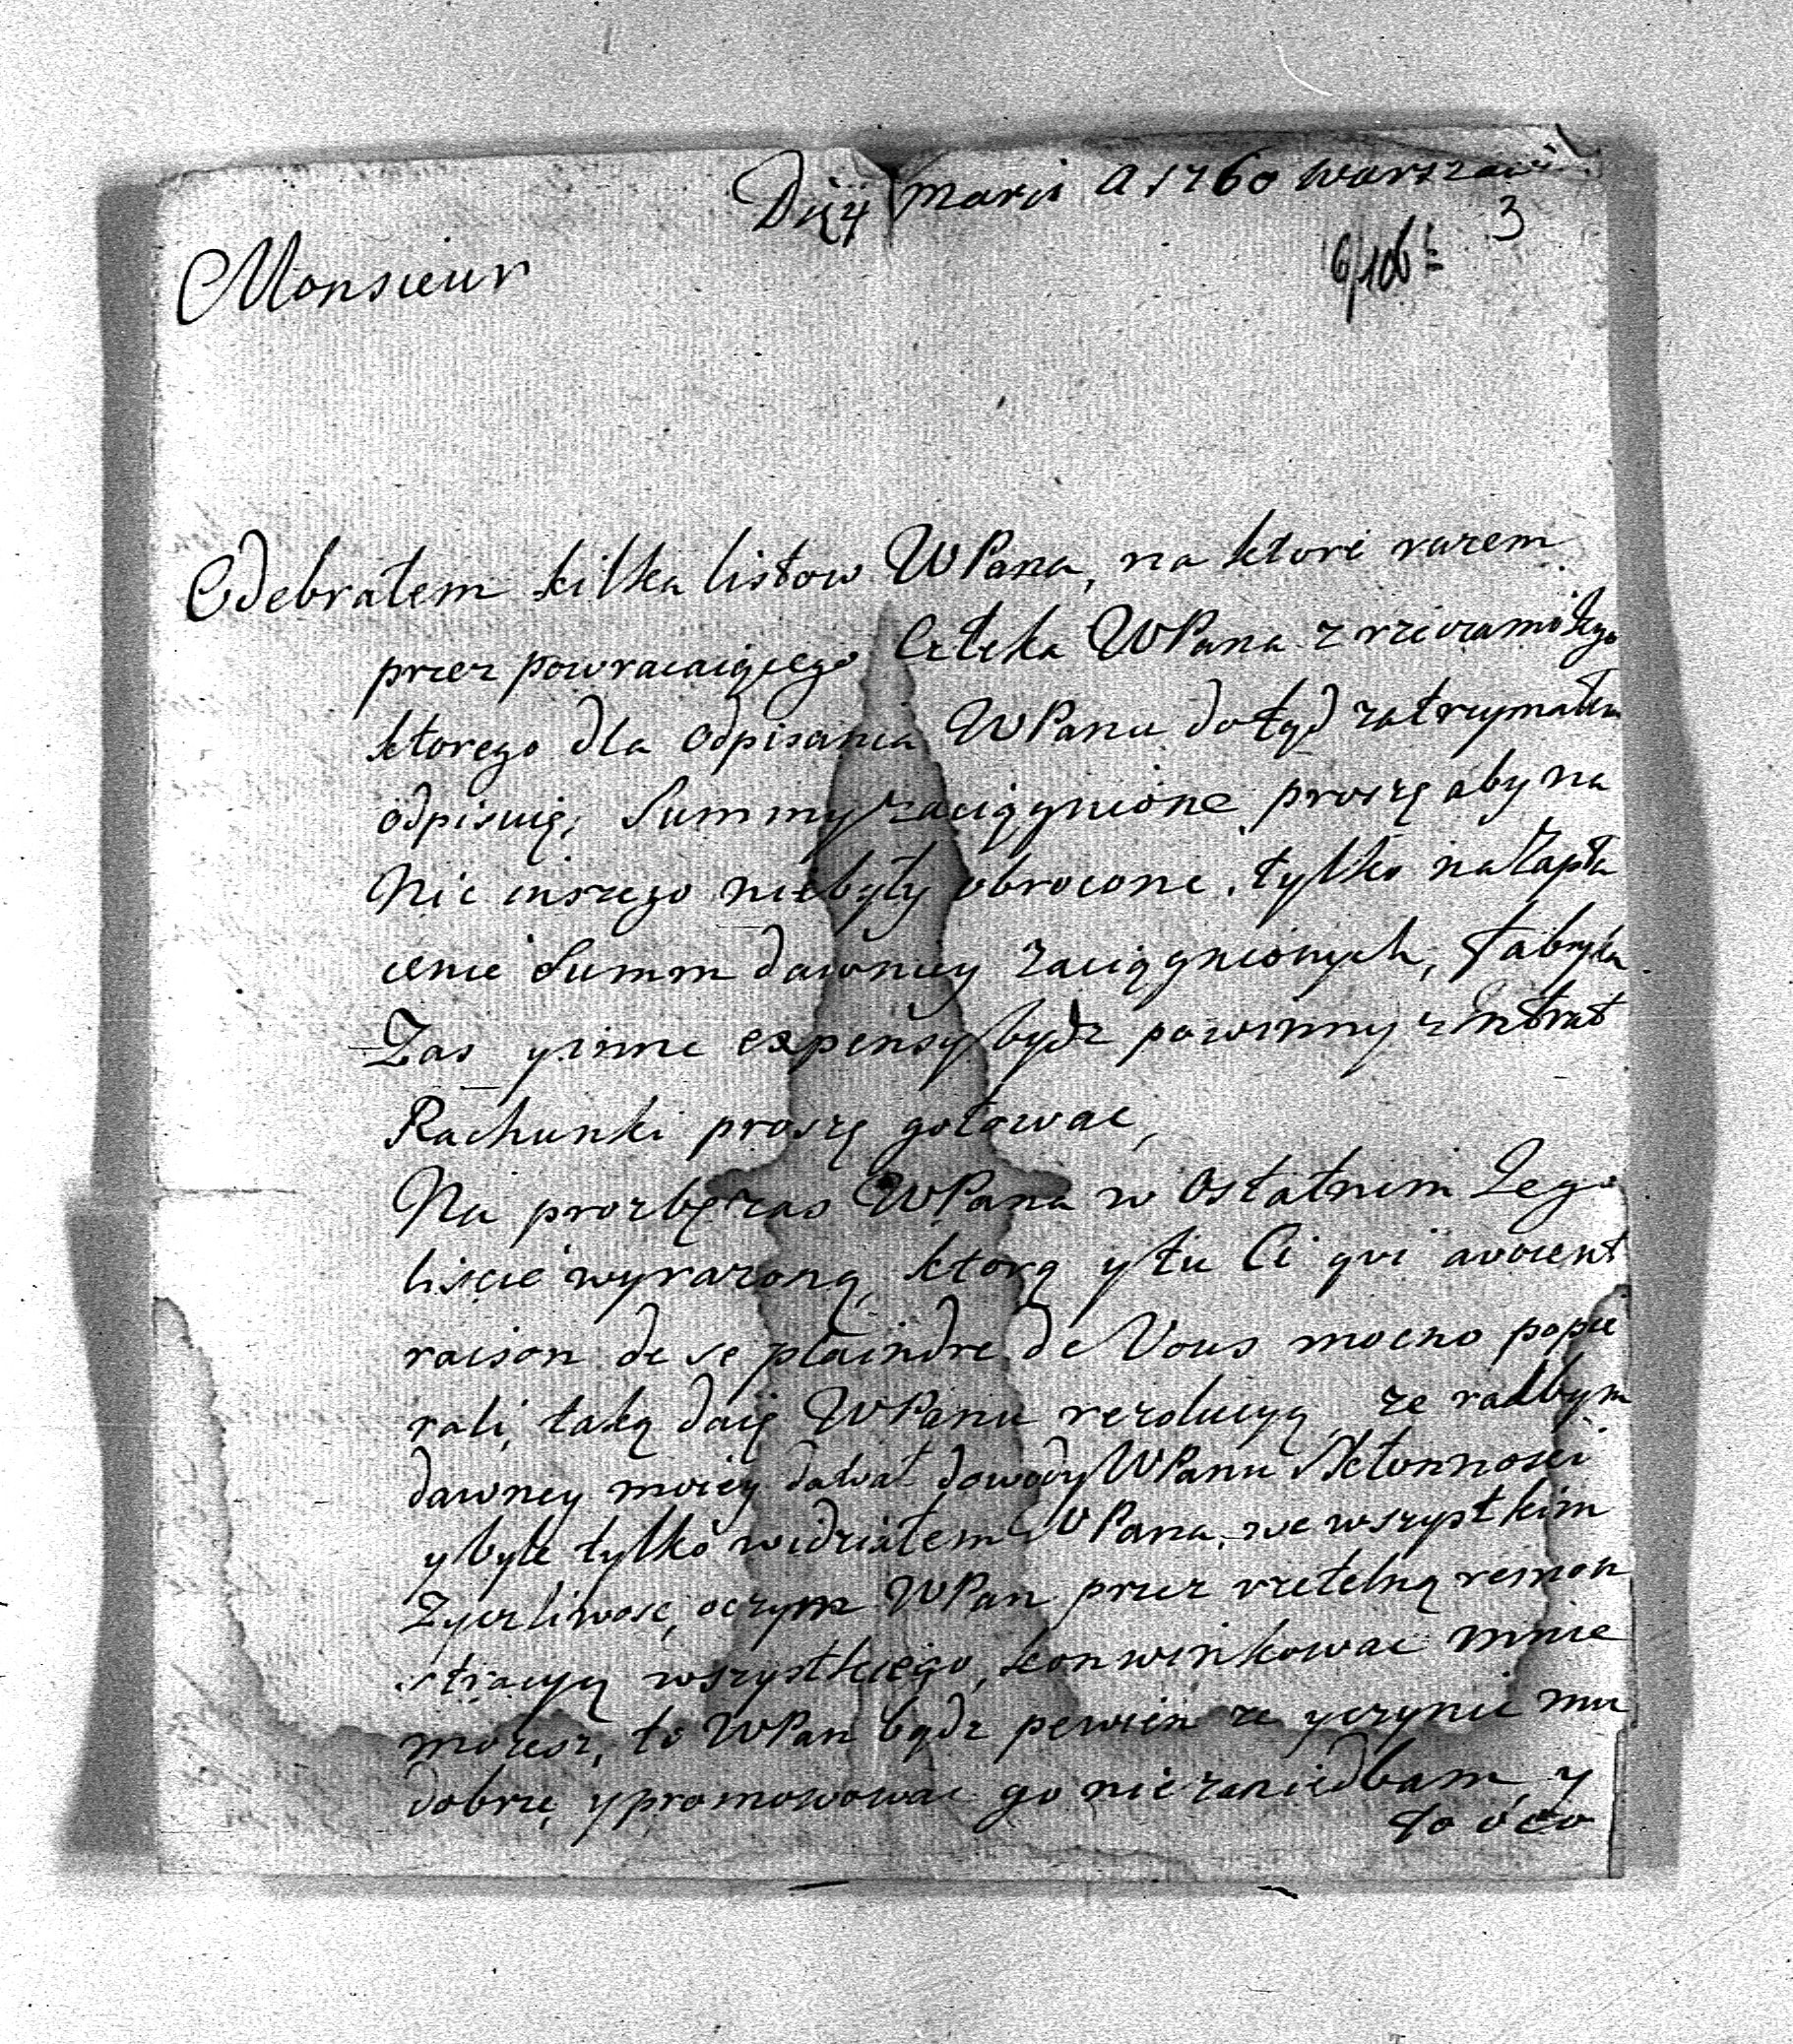 Marci A 1760 Warszawie
3
Monsieur
Odebrałem kilka listow WPana, na ktore razem
przez powracaiącego Człeka WPana z
ktorego dla odpisania WPanu dotąd zatrzymałem
odpisuię, Summy zaciągnione proszę aby na
Nic inszego niebyły obrocone, tylko na zapła
cenie Summ dawniey zaciągnionych, Fabryka
Zas y inne expensy bydz powinny z Intrat
Rachunki proszę gotowac,
Na prozbę zas WPana w Ostatnim Jego
liscie wyrazoną, ktorą y tu Ci qui avoient
raison de se plaindre de Vous mocno popie
rali, taką daię WPanu rezolucyą, ze radbym
dawney moiey dawał dowody WPanu Skłonnosci
y byle tylko widziałem WPana, we wszystkim
Zyczliwosc, oczym WPan przez rzetelną remon
stracyą wszystkiego, konwinkowac mnie
mozesz, to WPan bądz pewien ze uczynic mu
dobrze, y promowowac go niezaniedbam, y
to o co